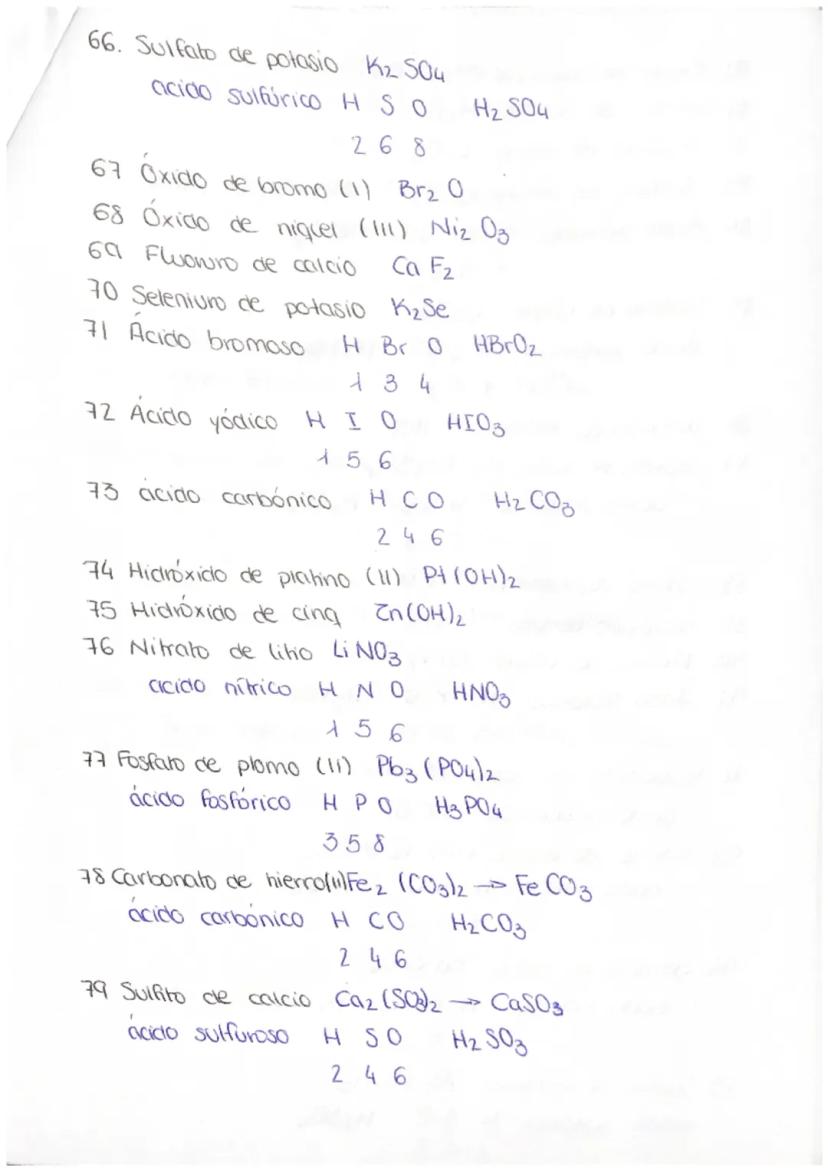 66. Sulfato de potasio K₂SO₄
acido sulfúrico H S O H₂SO₄
2 6 8
67 Óxido de bromo (I) Br₂O
68 Óxido de níquel (III) Ni₂O₃
69 Fluoruro de calcio CaF₂
70 Seleniuro de potasio K₂Se
71 Ácido bromoso H Br O HBrO₂
1 3 4
72 Ácido yódico H I O HIO₃
1 5 6
73 ácido carbónico H C O H₂CO₃
2 4 6
74 Hidróxido de platino (II) Pt(OH)₂
75 Hidróxido de cinq Zn(OH)₂
76 Nitrato de litio LiNO₃
acido nítrico H N O HNO₃
1 5 6
77 Fosfato de plomo (II) Pb₃(PO₄)₂
ácido fosfórico H P O H₃PO₄
3 5 8
78 Carbonato de hierro(II) Fe₂(CO₃)₂ → FeCO₃
ácido carbónico H C O H₂CO₃
2 4 6
79 Sulfito de calcio Ca₂(SO₃)₂ → CaSO₃
ácido sulfuroso H S O H₂SO₃
2 4 6